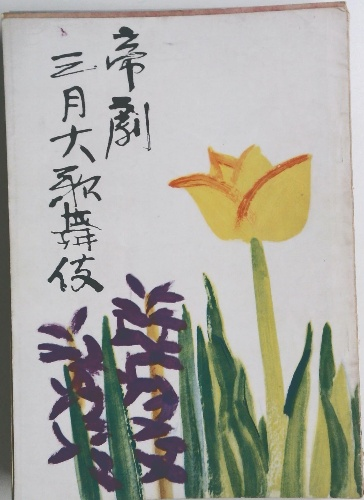 帝劇
三月大歌舞伎